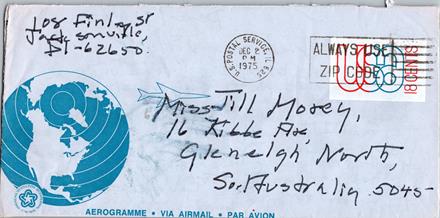 108 Finley St
Jacksonville,
Il-62650.
U.S. POSTAL SERVICE, IL 625
DEC 2
PM
1975
ALWAYS USE
ZIP CODE
18 CENTS
Miss Jill Mosey,
16 Kibbe Ave,
Glenelgh North,
So. Australia 5045
AEROGRAMME • VIA AIRMAIL • PAR AVION